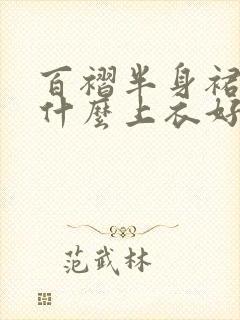 百褶半身裙
什麼上衣好
范武林